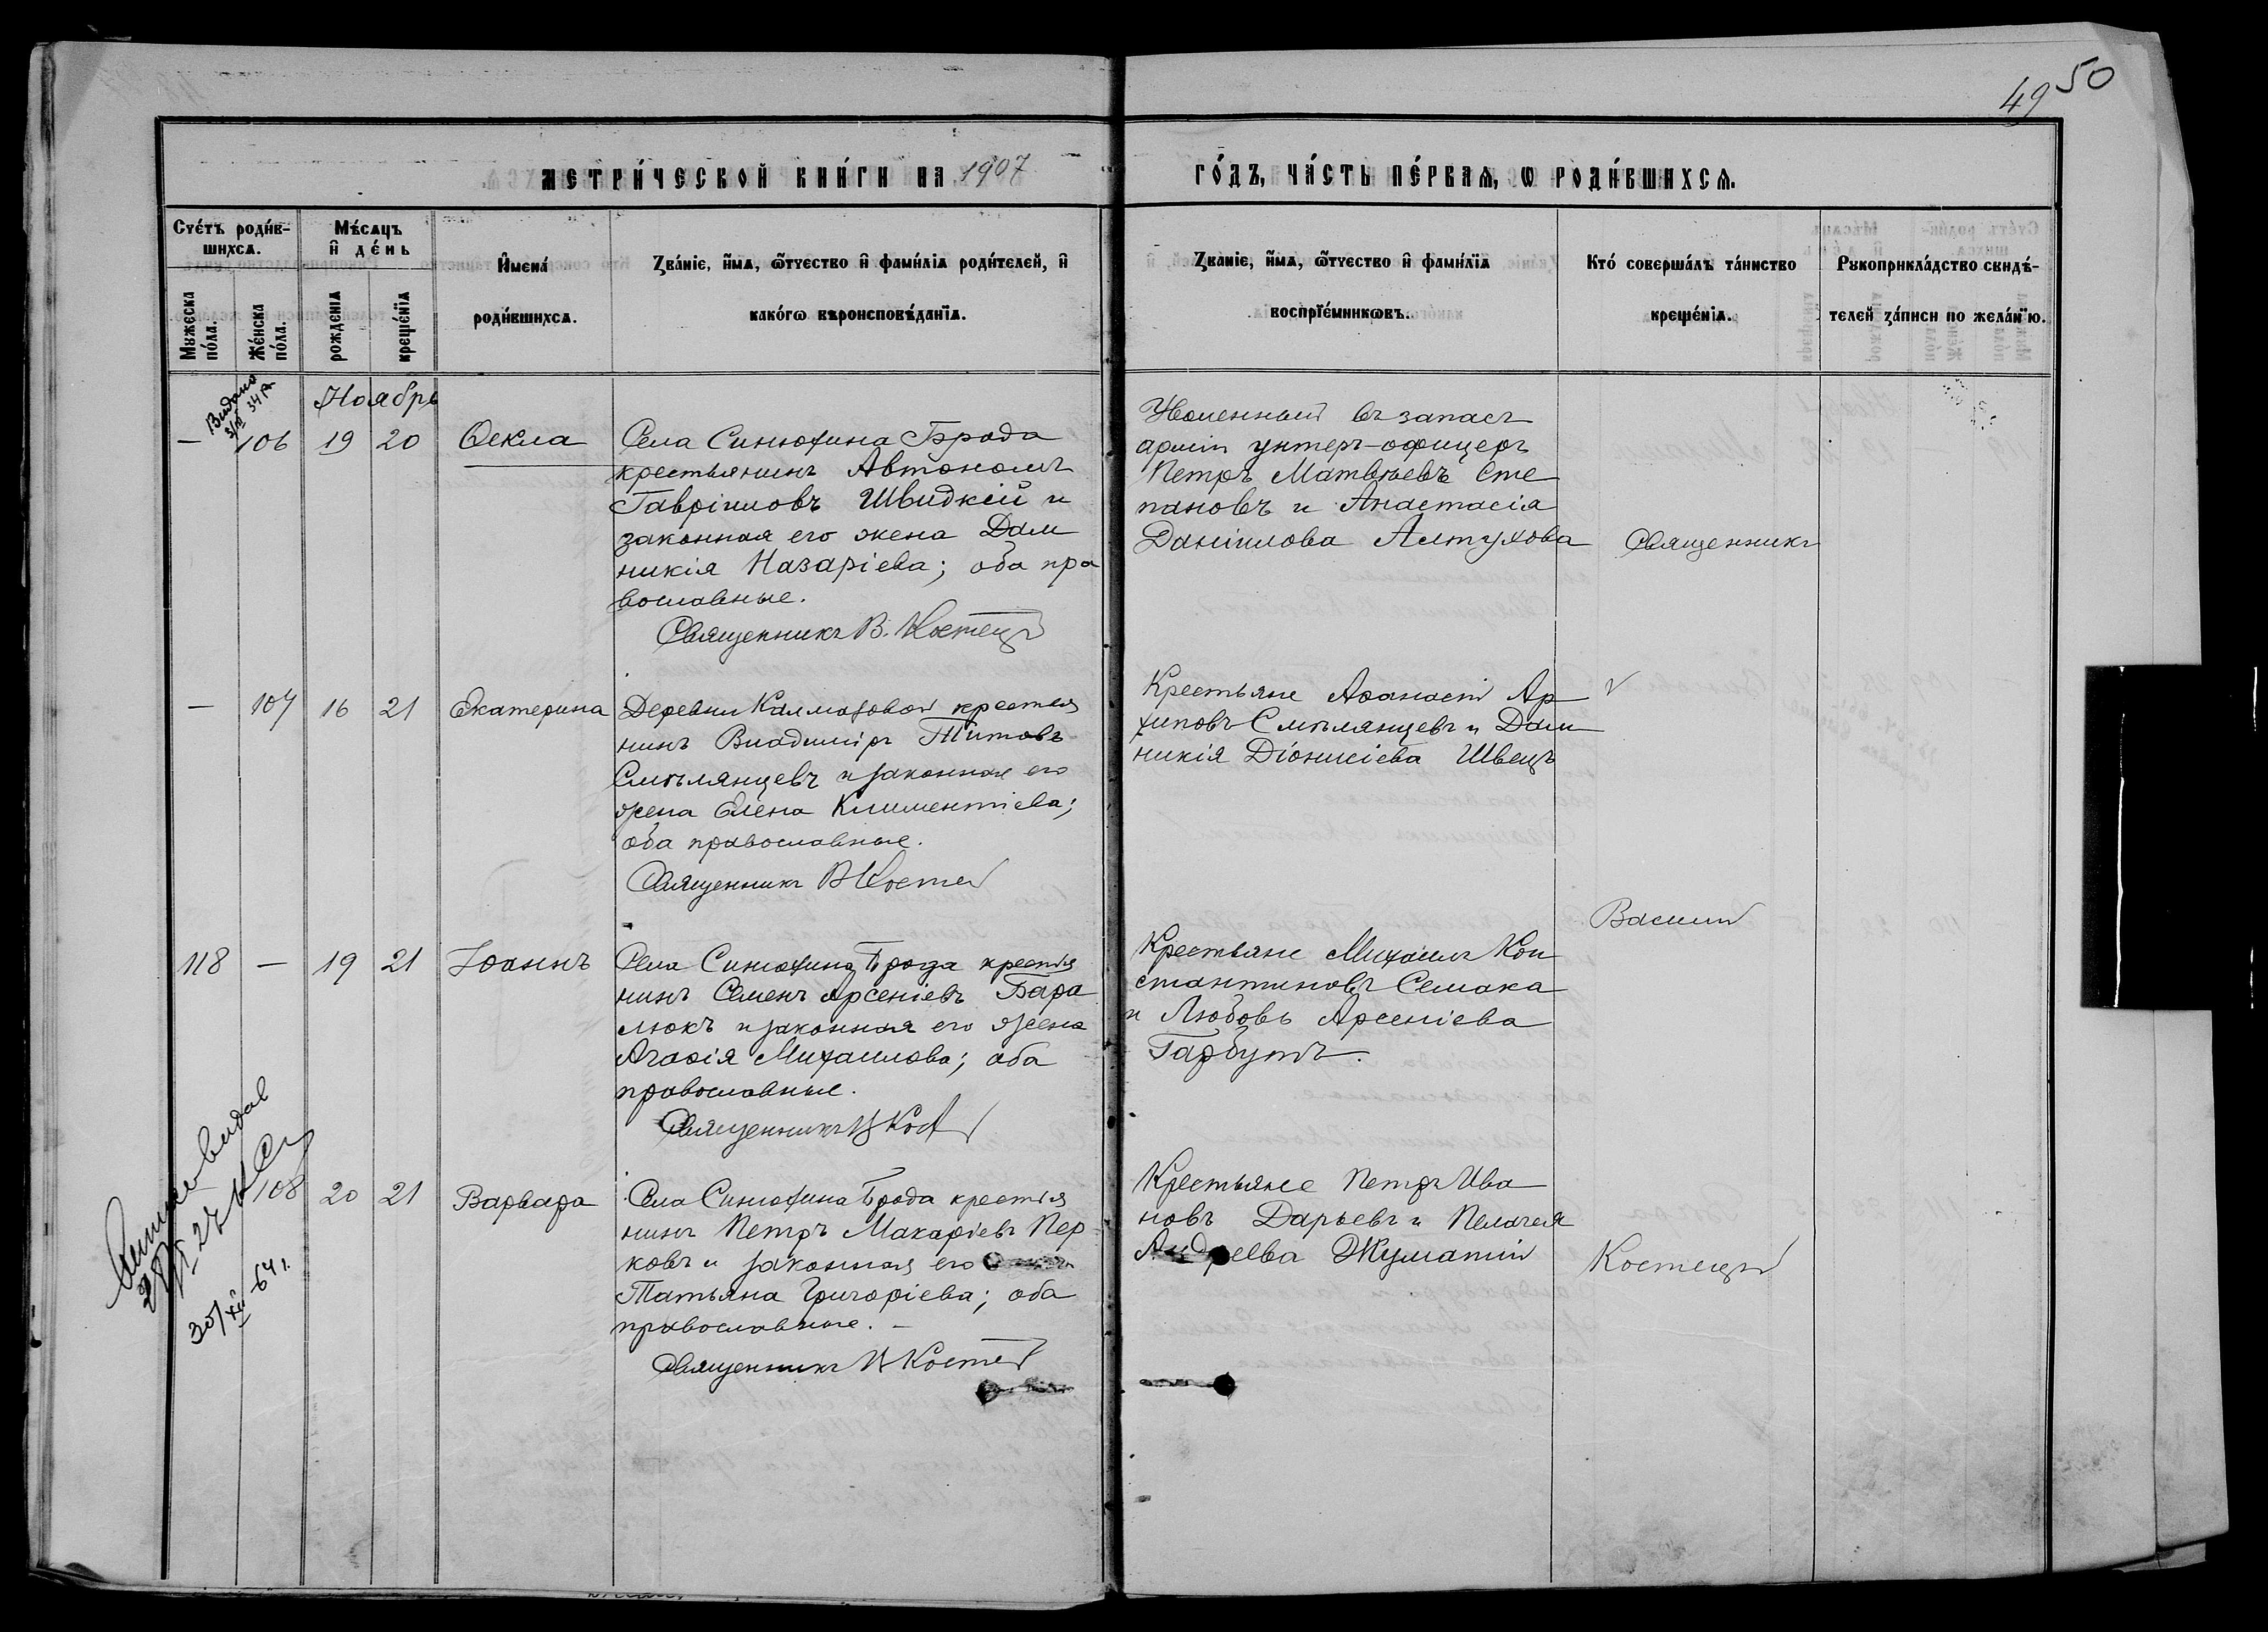 49 50
МЕТРИ́ЧЕСКОЙ КНИ́ГИ НА 1907 ГО́ДЪ, ЧА́СТЬ ПЕ́РВАѦ, Ѡ РОДИ́ВШИХСѦ.
Счє́тъ роди́в-
шихсѧ.
Мꙋжєска по́ла.
Жє́нска по́ла.
Мѣ́сѧцъ
и҆ дє́нь
рождєнїѧ
крєщє́нїѧ
И҆мєна́
роди́вшихсѧ.
Зва́нїє, и҆́мѧ, ѻ҆́тчєство и҆ фами́лїѧ роди́тєлєй, и҆
како́гѡ вѣроисповѣ́данїѧ.
Зва́нїє, и҆́мѧ, ѻ҆́тчєство и҆ фами́лїѧ
воспрїє́мникѡвъ.
Кто́ совєрша́лъ та́инство
крєщє́нїѧ.
Рꙋкоприкла́дство свидѣ́-
тєлєй за́писи по жєла́нїю.
Видано
34 р.
Ноябрь
— 106 19 20 Ѳекла
Села Синюхина Брода
крестьянинъ Автономъ
Гавріиловъ Швидкій и
законная его жена Дом
никія Назаріева; оба пра
вославные.
Священникъ В. Костецк
Уволенный въ запасъ
арміи унтеръ-офицеръ
Петръ Матвѣевъ Сте
пановъ и Анастасія
Даніилова Алтухова
Священникъ
— 107 16 21 Екатерина
Деревни Калмазовой крестья
нинъ Владиміръ Титовъ
Смѣлянцевъ и законная его
жена Елена Климентіева;
оба православные.
Священникъ В Косте
Крестьяне Аѳанасій Ар
хиповъ Смѣлянцевъ и Дом
никія Діонисіева Швець
Василій
118 — 19 21 Іоаннъ
Села Синюхина Брода крестья
нинъ Семенъ Арсеніевъ Бара
люкъ и законная его жена
Агаѳія Михаилова; оба
православные.
Священникъ В Кос
Крестьяне Михаилъ Кон
стантиновъ Семака
и Любовь Арсеніева
Гарбузъ.
видав
30/XII 64 г.
108 20 21 Варвара
Села Синюхина Брода крестья
нинъ Петръ Макаріевъ Пер
ковъ и законная его
Татьяна Григоріева; оба
православные. —
Священникъ В Косте
Крестьяне Петръ Ива
новъ Дарьевъ и Пелагея
Андреева Жуматій
Костецкій